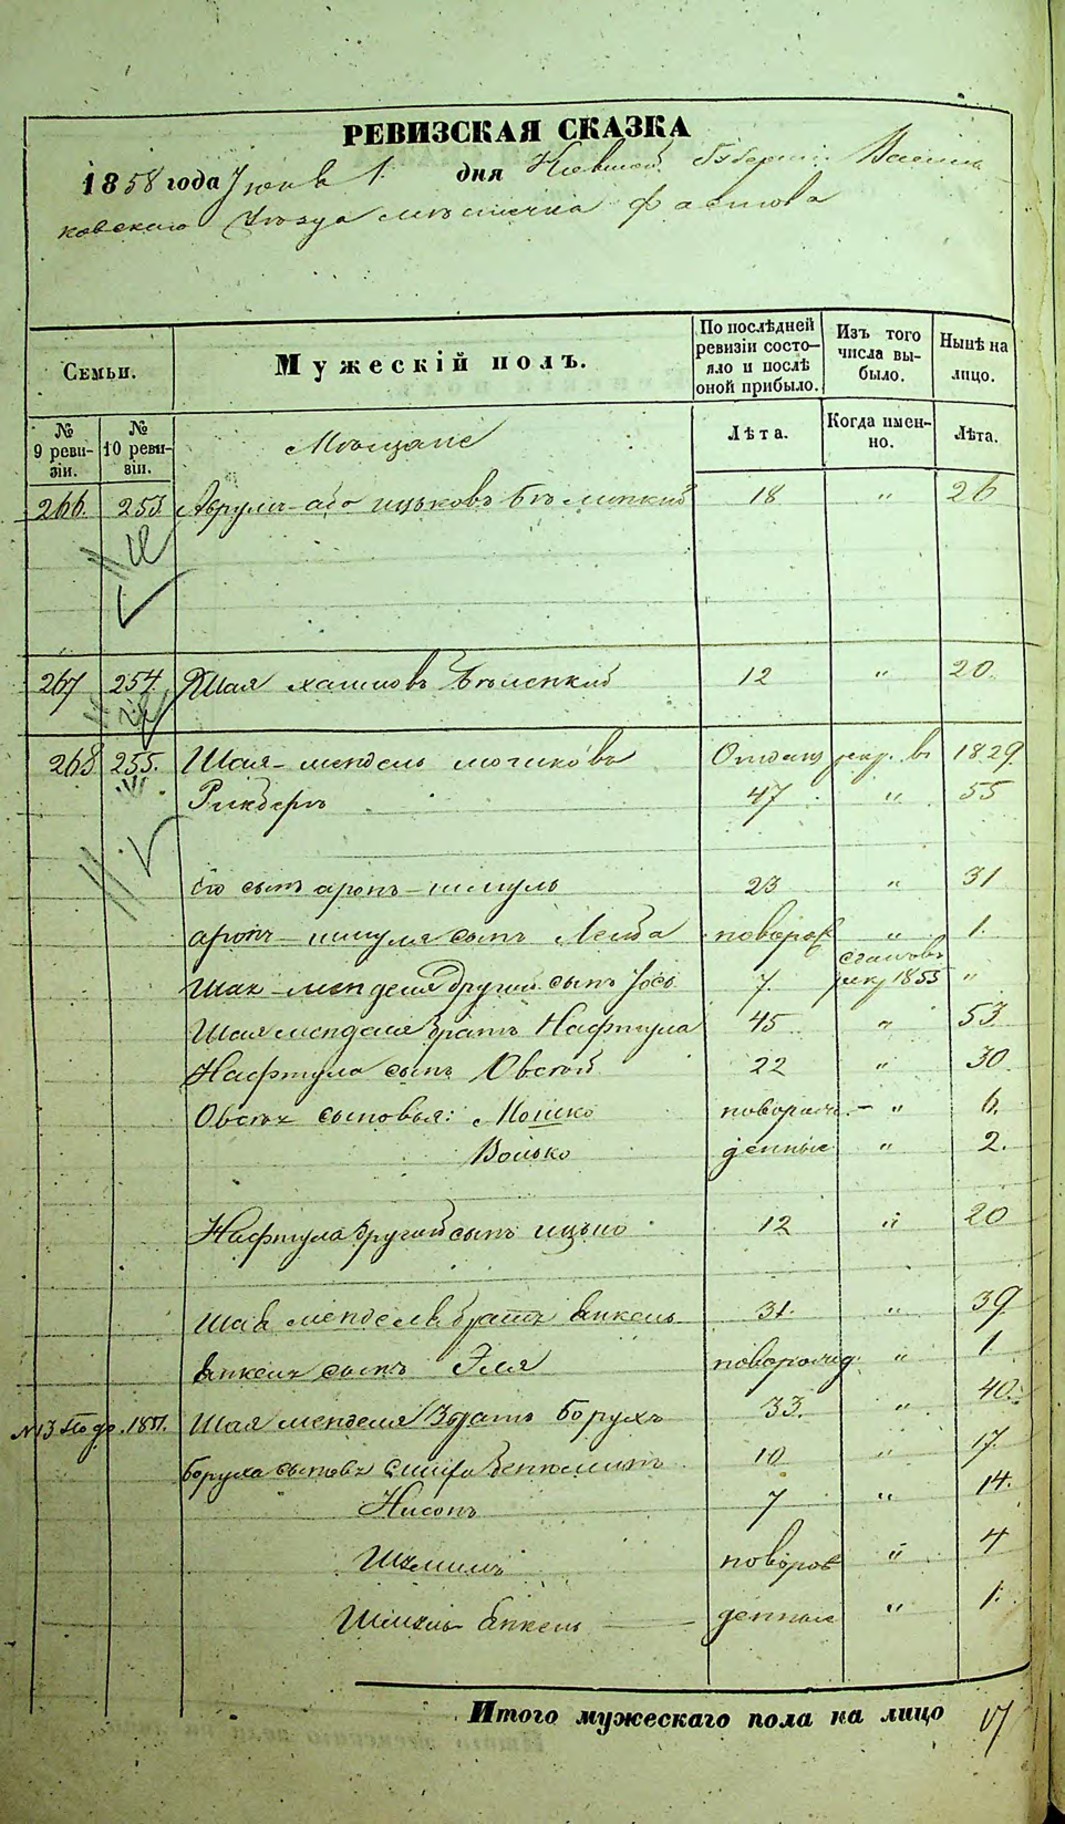 РЕВИЗСКАЯ СКАЗКА
1858 года Июня 1 дня Кіевской Губерніи Василь
ковскаго Уѣзда мѣстечка Фастова
Семьи.
Мужескій полъ.
По послѣдней ревизіи состо-
яло и послѣ
оной прибыло.
Изъ того
числа вы-
было.
Нынѣ на
лицо.
№
9 реви-
зіи.
№
10 реви-
зіи.
Мѣщане
Лѣта.
Когда имен-
но.
Лѣта.
266. 253. Аврумъ-або ицьковъ 18 " 26
267 254. Шая хаимовъ Бѣлецкий 12 " 20.
268 255. Шая-мендель мошковъ Отданъ рекр. въ 1829
47 " 55
Его сынъ аронъ-шмуль 23 " 31
аронъ-шмуля сынъ Лейба новорож " 1.
Шая-менделя другий сынъ Іось 7. рекр 1855 "
Шая менделя братъ Нафтула 45 " 53
Нафтула сынъ Овсѣй 22 " 30.
Овсѣя сыновья: Мошко новорож. - " 6.
Волько денные " 2.
Нафтула другий сынъ ицько 12 " 20
Шая менделя братъ Янкель 31. " 39
Янкеля сынъ Эля новорожд. " 1
№ 13 1851. Шая менделя 3 братъ Борухъ 33. " 40.
Боруха сыновья 10 " 17.
Нисонъ 7 " 14.
новорож " 4
Янкель денные " 1.
Итого мужескаго пола на лицо 17